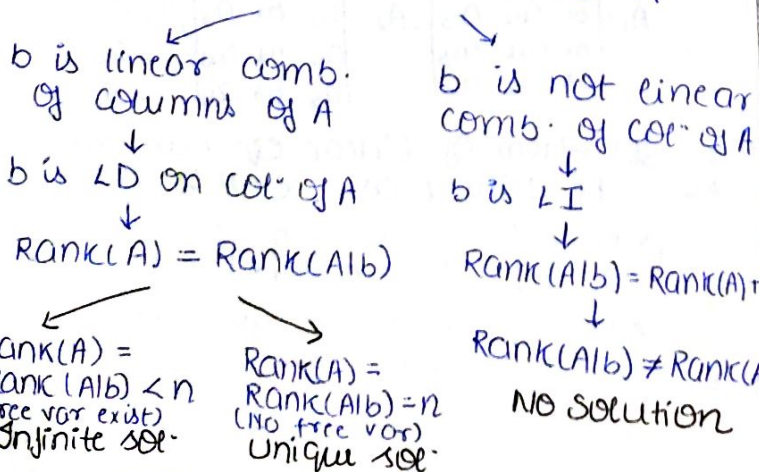 b is linear comb.
of columns of A
↓
b is LD on col. of A
↓
Rank(A) = Rank(A|b)
ank(A) =
ank (A|b) < n
ree var exist)
Infinite sol.
Rank(A) =
Rank(A|b) = n
(No free var)
unique sol.
b is not linear
comb. of col. of A
↓
b is LI
↓
Rank(A|b) = Rank(A)+
↓
Rank(A|b) ≠ Rank(A
No solution